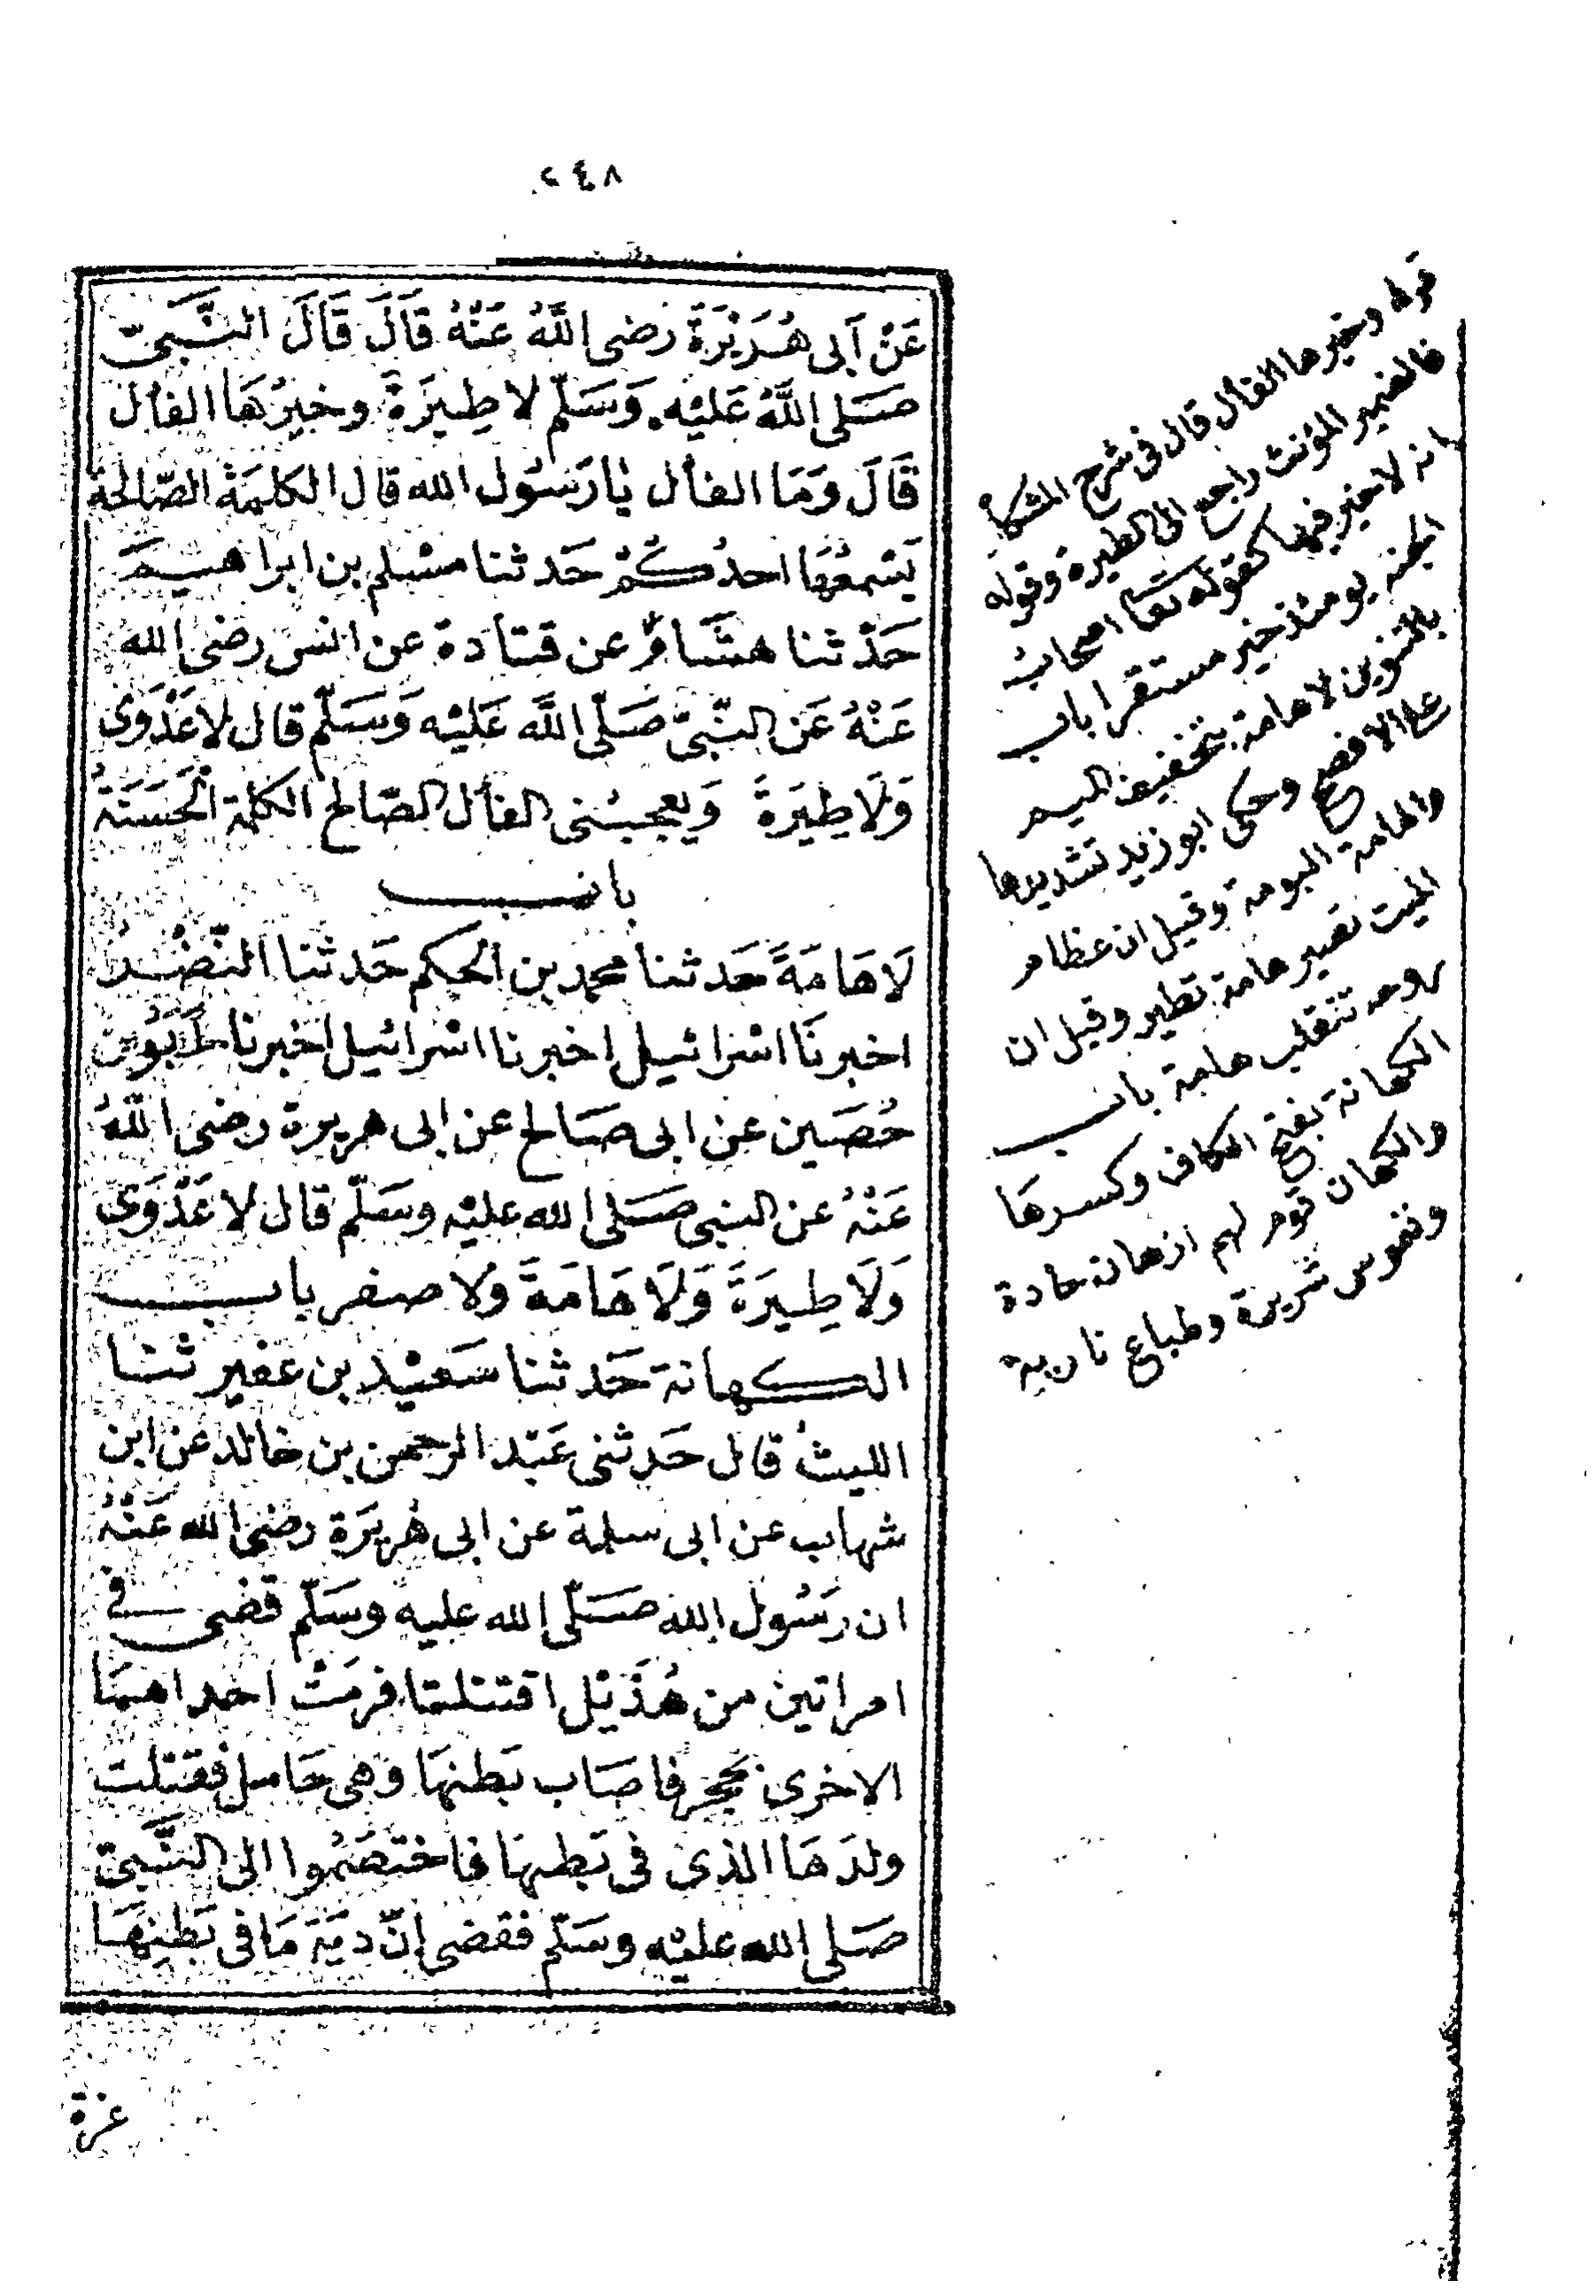 ٢٤٨
عَنْ اَبى هُرَيْرَةَ رضى اللَّهُ عَنْهُ قَالَ قَالَ النَّبىّ
صَلى اللَّهُ عَلَيْهِ وَسَلّم لا طِيَرَةَ وخيرُهَا الفأل
قَالَ وَمَا الفأل يٰا رَسُول الله قال الكلِمَةُ الصّالحة
يَسْمعُهَا احدُكُمْ حَدثنا مسْلم بن ابراهيم
حَدّثنا هشَامٌ عن قتادة عن انس رضى الله
عَنْهُ عَن النّبىّ صَلّى اللَّه عَلَيْه وَسَلّم قال لا عَدْوَى
وَلَا طِيَرَةَ وَيعجبُنى الفأل الصّالح الكلمة الْحَسَنَةُ
باب
لَا هَامَةَ حَدثنا محمد بن الحكم حَدثنا النّضْرُ
اخبرنَا اسْرائيل اخبرنا اسْرائيل اخبرنا اَبُو
حُصَين عن ابى صَالح عن ابى هريرة رضى اللهُ
عَنْهُ عن النبى صَلى الله عليْه وسَلّم قال لا عَدْوَى
وَلَا طِيَرَةَ وَلَا هَامَةَ وَلا صفر باب
الكهانة حَدثنا سَعيْد بن عفير ثنا
الليثُ قال حَدثنى عَبْد الرحمن بن خالد عن ابن
شهاب عن ابى سلمة عن ابى هُريرَة رضى الله عَنْهُ
ان رَسُول الله صَلّى الله عليه وسَلّم قضى فى
امراتين من هُذَيْل اقتتلتا فرمَتْ احداهمَا
الاخرى بحجر فاصَاب بَطنهَا وهى حَامل فقتلت
ولدَهَا الذى فى بَطنهَا فاختصَمُوا الى النَّبىّ
صَلى الله عليْه وسَلّم فقضى اِنّ ديَةَ مَا فى بَطنِهَا
غرة
قوله وخيرها الفأل قال فى شرح المشكاة
فالضمير المؤنث راجع الى الطيرة وقوله
انه لا خير فيها كقوله تعا اصحاب
الجنه يومئذ خير مستقرا باب
بالتنوين لا هامة بتخفيف الميم
على الافصح وحكى ابو زيد تشديدها
والهامة البومة وقيل ان عظام
الميت تصير هامة تطير وقيل ان
روحه تنقلب هامة باب
الكهانة بفتح الكاف وكسرهَا
والكهان قوم لهم اذهان حادة
ونفوس شريرة وطباع نارية